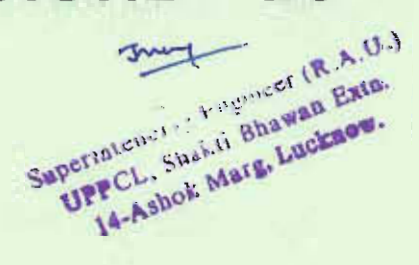 Superintending Engineer (R.A.U.)
UPPCL, Shakti Bhawan Extn.
14-Ashok Marg, Lucknow.